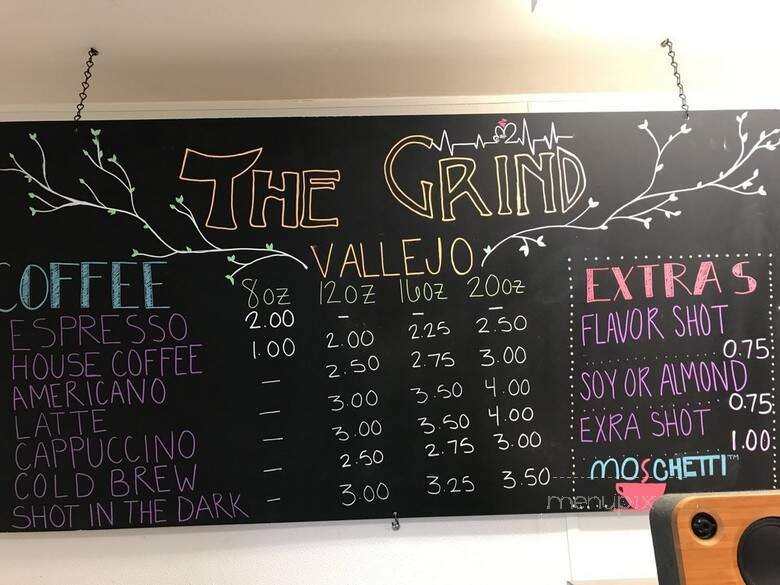 THE GRIND
VALLEJO
COFFEE 8oz 12oz 16oz 20oz
ESPRESSO 2.00 – –
HOUSE COFFEE 1.00 2.00 2.25 2.50
AMERICANO – 2.50 2.75 3.00
LATTE – 3.00 3.50 4.00
CAPPUCCINO – 3.00 3.50 4.00
COLD BREW – 2.50 2.75 3.00
SHOT IN THE DARK – 3.00 3.25 3.50
EXTRAS
FLAVOR SHOT
0.75
SOY OR ALMOND
0.75
EXRA SHOT
1.00
MOSCHETTI™
menupix